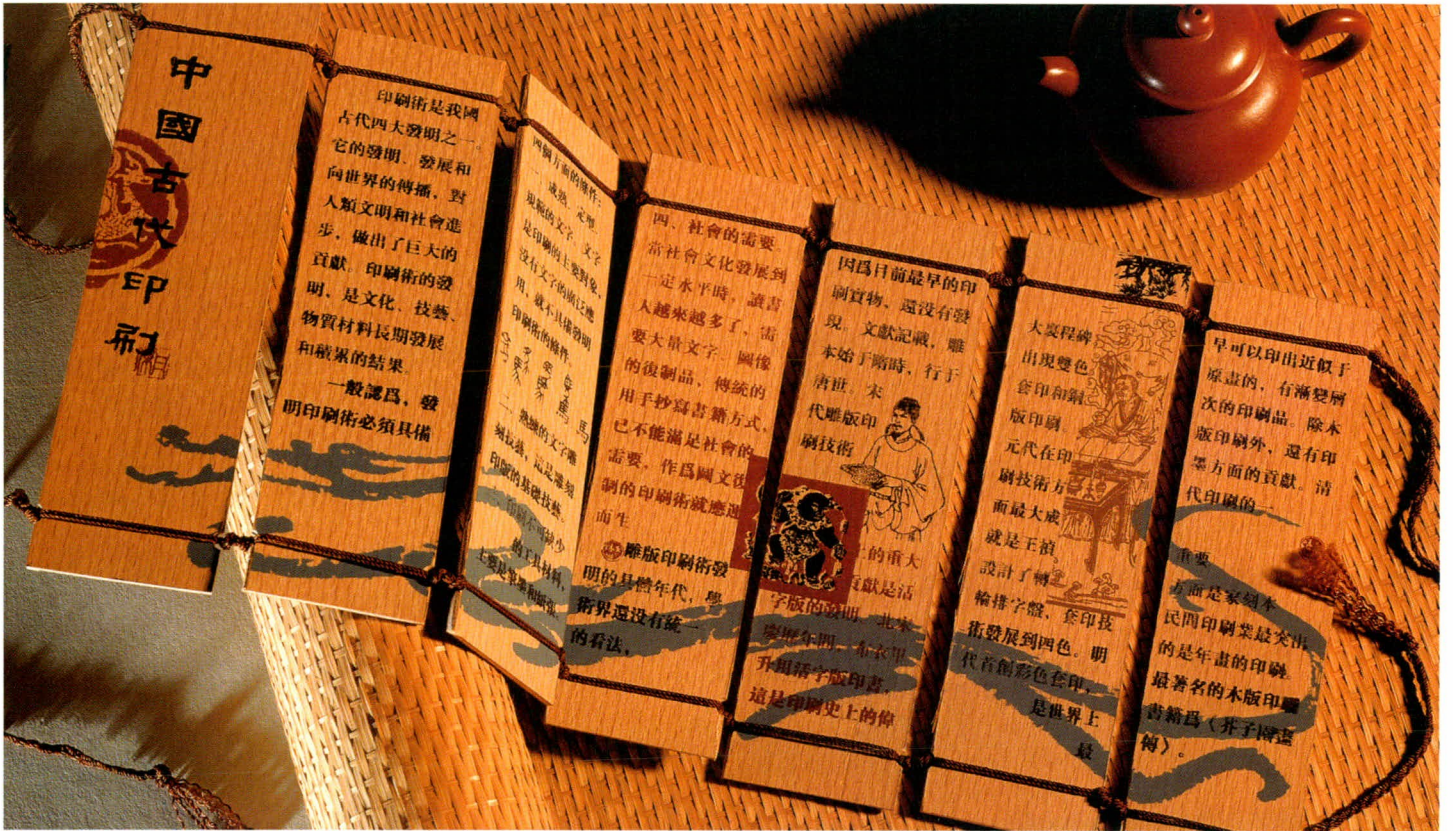 中國古代印刷
印刷術是我國
古代四大發明之一。
它的發明、發展和
向世界的傳播，對
人類文明和社會進
步，做出了巨大的
貢獻。印刷術的發
明，是文化、技藝、
物質材料長期發展
和積累的結果。
一般認爲，發
明印刷術必須具備
四個方面的條件：
一、成熟、定型、
規範的文字。文字
是印刷的主要對象，
没有文字的廣泛應
用，就不具備發明
印刷術的條件。
二、熟練的文字雕
刻技藝，這是雕刻
印版的基礎技藝。
的工具材料，
主要是筆墨和紙張。
四、社會的需要。
當社會文化發展到
一定水平時，讀書
人越來越多了，需
要大量文字、圖像
的復制品，傳統的
用手抄寫書籍方式，
已不能滿足社會的
需要，作爲圖文復
制的印刷術就應運
而生
雕版印刷術發
明的具體年代，學
術界還没有統一
的看法，
因爲目前最早的印
刷實物，還没有發
現。文獻記載，雕
本始于隋時，行于
唐世。宋
代雕版印
刷技術
上的重大
貢獻是活
字版的發明。北宋
慶曆年間，布衣畢
升用活字版印書，
這是印刷史上的偉
大裏程碑
出現雙色
套印和銅
版印刷。
元代在印
刷技術方
面最大成
就是王禎
設計了轉
輪排字盤，套印技
術發展到四色。明
代首創彩色套印，
是世界上
最
早可以印出近似于
原畫的，有漸變層
次的印刷品。除木
版印刷外，還有印
墨方面的貢獻。清
代印刷的
重要
方面是家刻本
民間印刷業最突出
的是年畫的印刷。
最著名的木版印刷
書籍爲〈芥子園畫
傳〉。